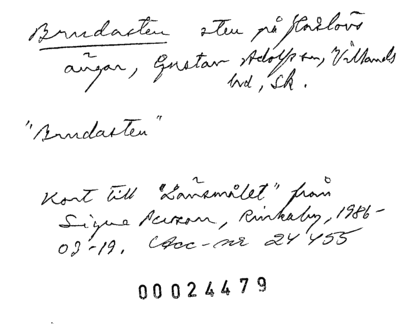 Brudasten sten på Haslövs
ängar, Gustav Adolf sn, Villands
hd, Sk.
"Brudasten"
Kort till "Länsmålet" från
Signe Persson, Rinkaby, 1986-
03-19. Acc-nr 24455
00024479